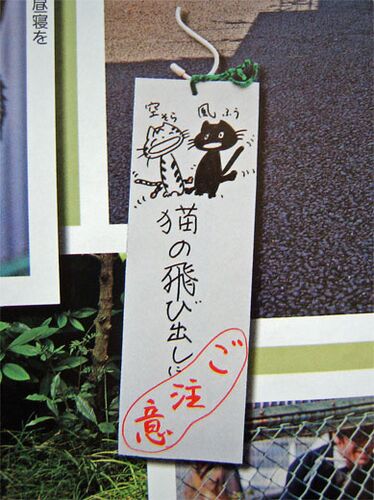 昼寝を
空そら
風ふう
猫の飛び出しに
ご注意